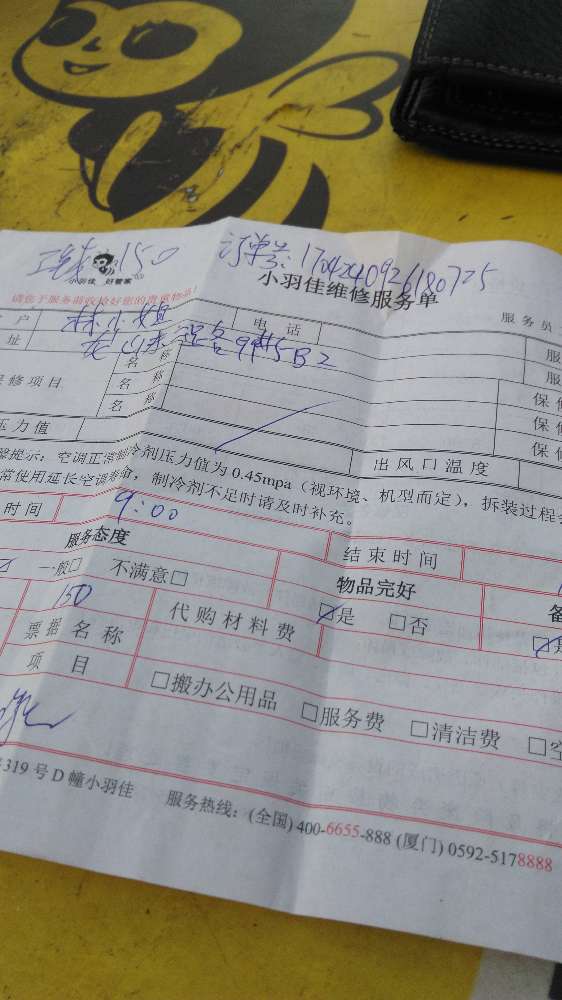 150 订单号:1704240926180725
小羽佳 好管家
小羽佳维修服务单
请您于服务前收拾好您的贵重物品!
服务员
户 林小姐 电话
址
名称
修项目 名称 保修
名称 保修
保修
压力值 出风口温度
提示:空调正常制冷剂压力值为0.45mpa(视环境、机型而定),拆装过程
常使用延长空调寿命,制冷剂不足时请及时补充。
时间 9:00 结束时间
服务态度 物品完好
一般□ 不满意□ ☑是 □否
150 代购材料费
票据名称
项目 □搬办公用品 □服务费 □清洁费 □空
319号D幢小羽佳 服务热线:(全国)400-6655-888 (厦门)0592-5178888